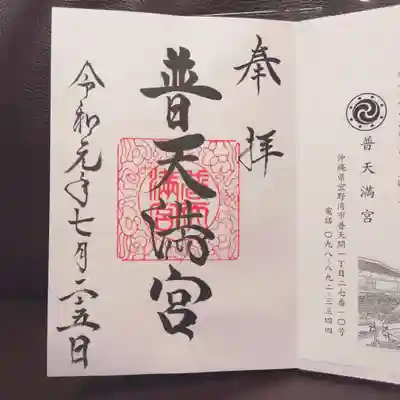 奉拝
普天満宮
令和元年七月二十五日
普天満宮
沖縄県宜野湾市普天間一丁目二七番一〇号
電話 〇九八-八九二-三三四四